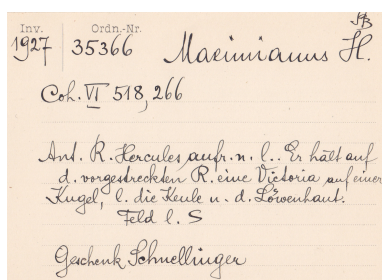 Inv. Ordn.-Nr.
1927 35366 Maximianus H.
Coh. VI 518, 266
Ant. R. Hercules aufr. n. l.. Er hält auf
d. vorgestreckten R. eine Victoria auf einer
Kugel, l. die Keule u. d. Löwenhaut.
Feld l. S
Geschenk Schnellinger